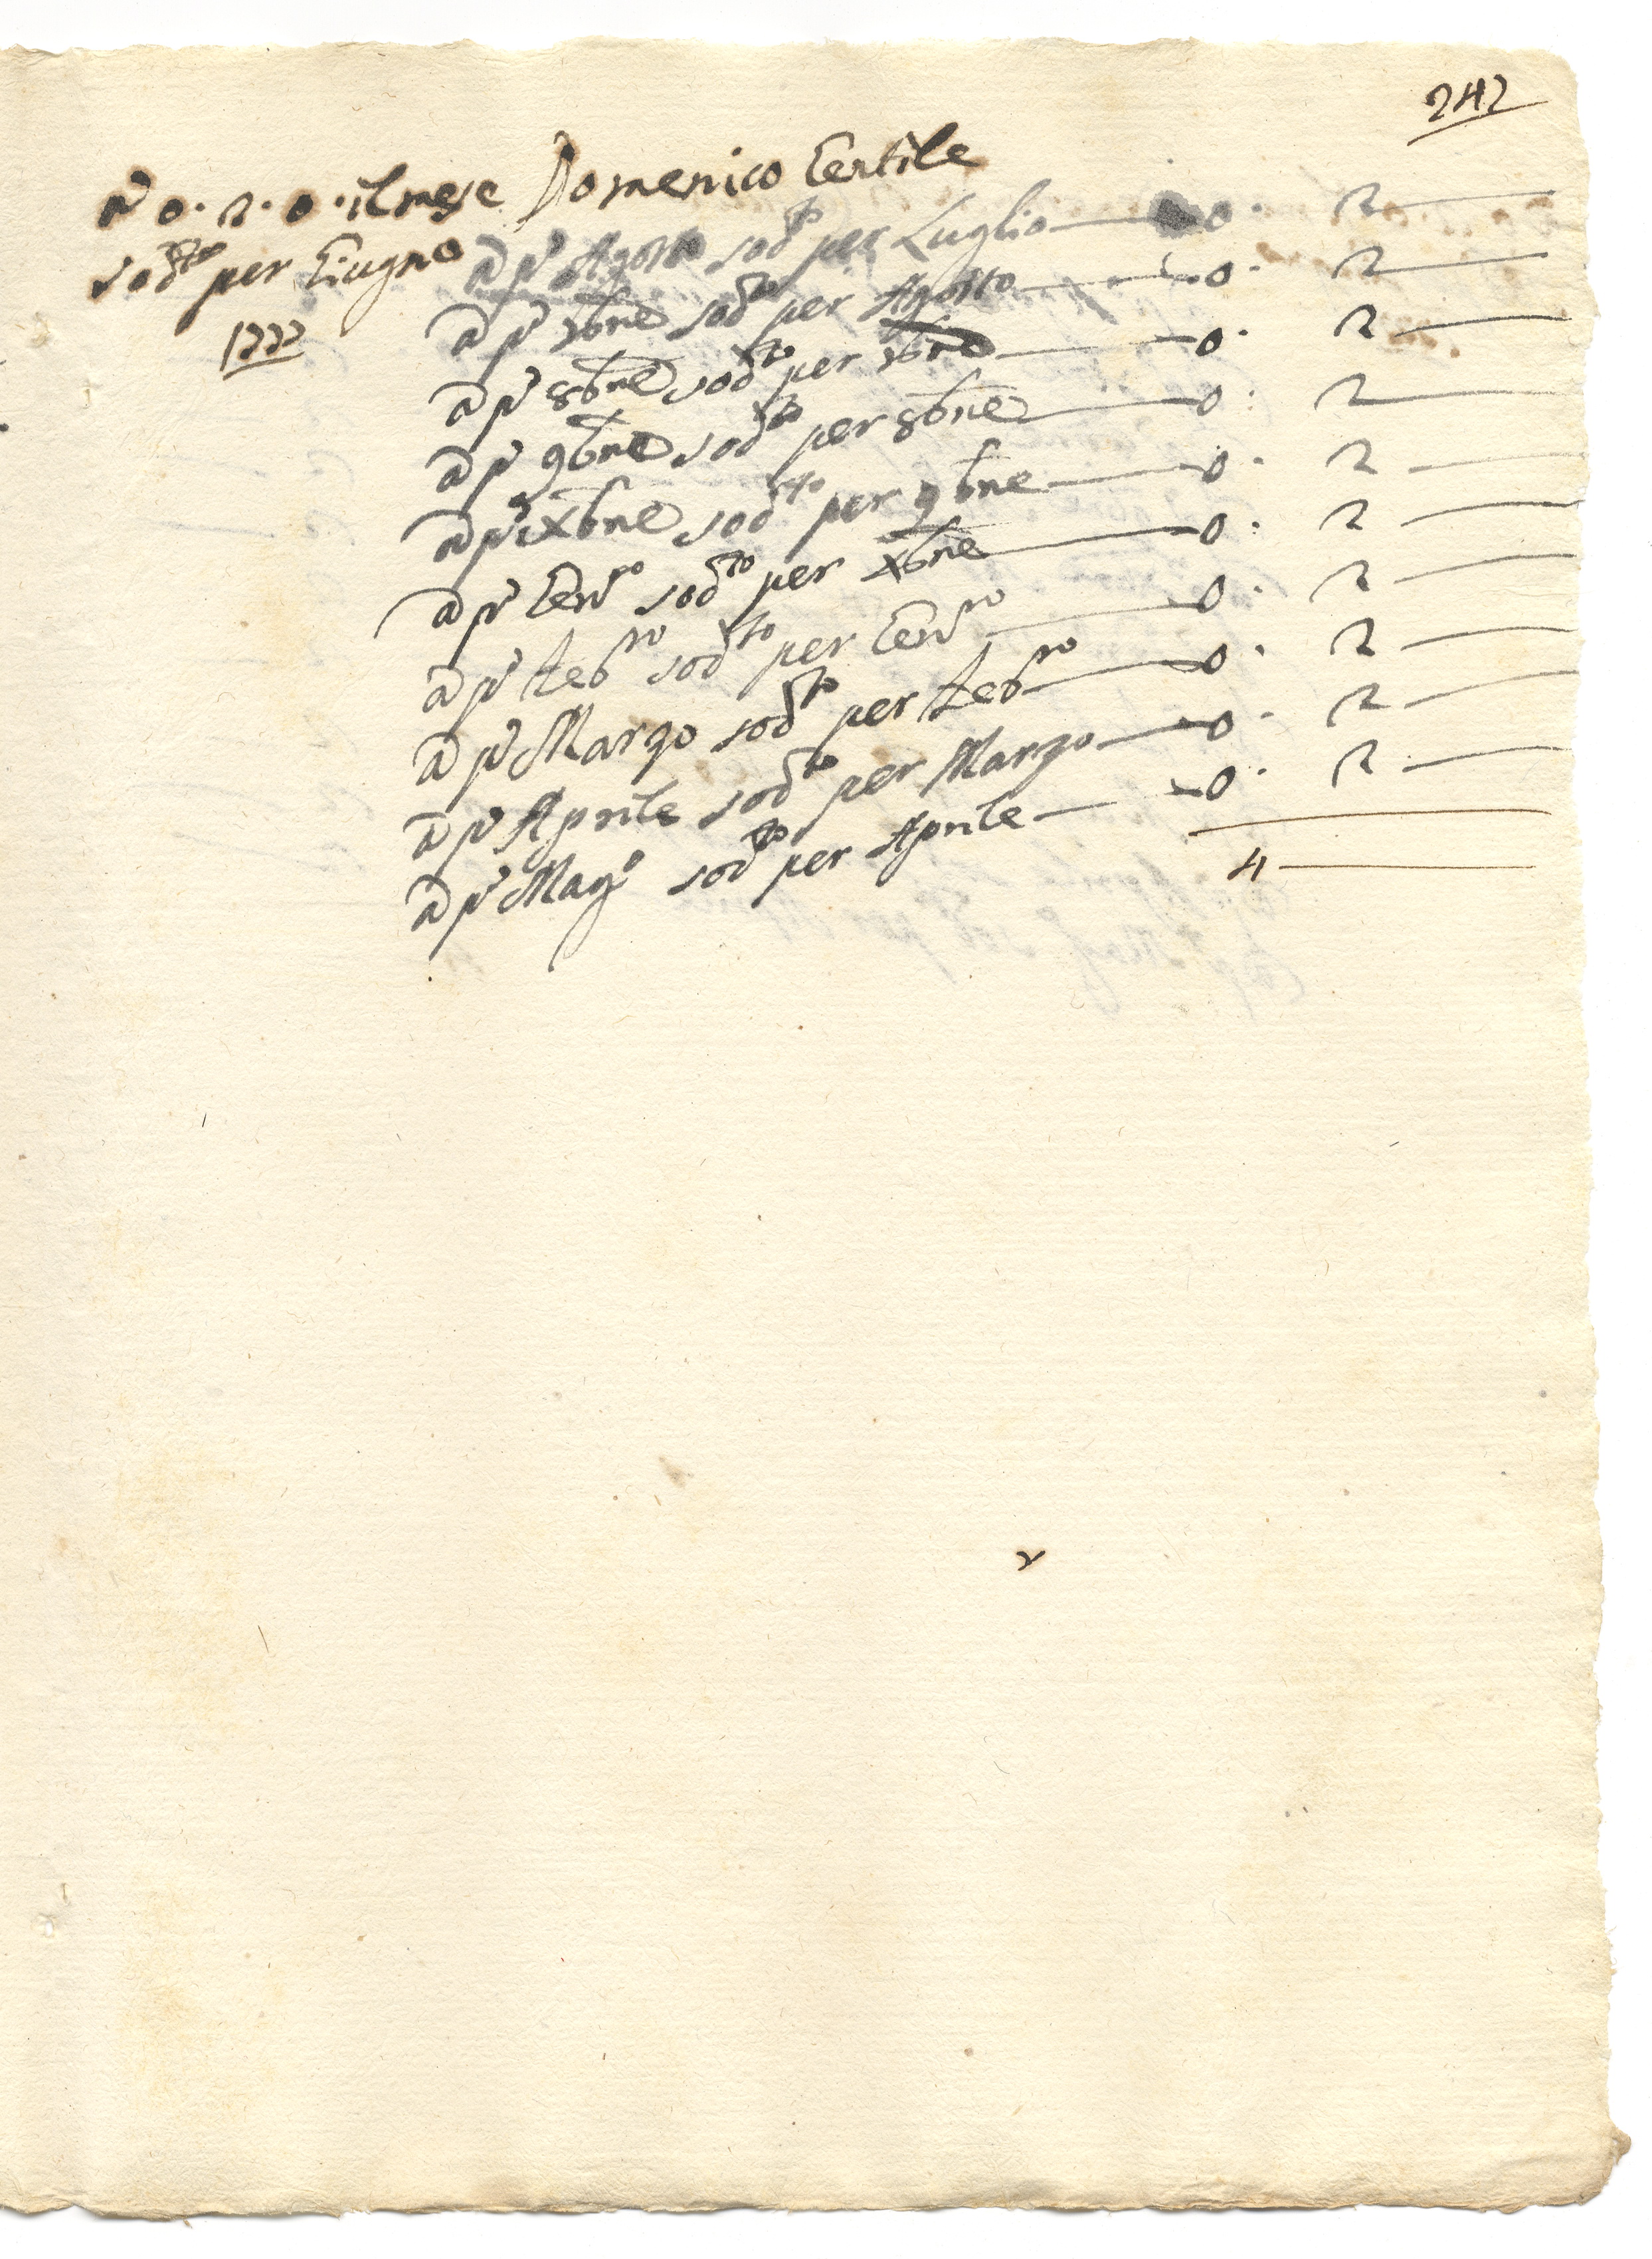 242
à 0. 2. 0. il mese Domenico Gentile
sod.to per Giugno
1777
a p.o Agosto sod.to per Luglio — 0. 2 —
a p.o 7bre sod.to per Agosto — 0. 2 —
a p.o 8bre sod.to per 7bre — 0. 2 —
a p.o 9bre sod.to per 8bre — 0. 2 —
a p.o Xbre sod.to per 9bre — 0. 2 —
a p.o Gen.ro sod.to per Xbre — 0. 2 —
a p.o Feb.ro sod.to per Gen.ro — 0. 2 —
a p.o Marzo sod.to per Feb.ro — 0. 2 —
a p.o Aprile sod.to per Marzo — 0. 2 —
a p.o Mag.o sod.to per Aprile — 0. 2 —
4 —